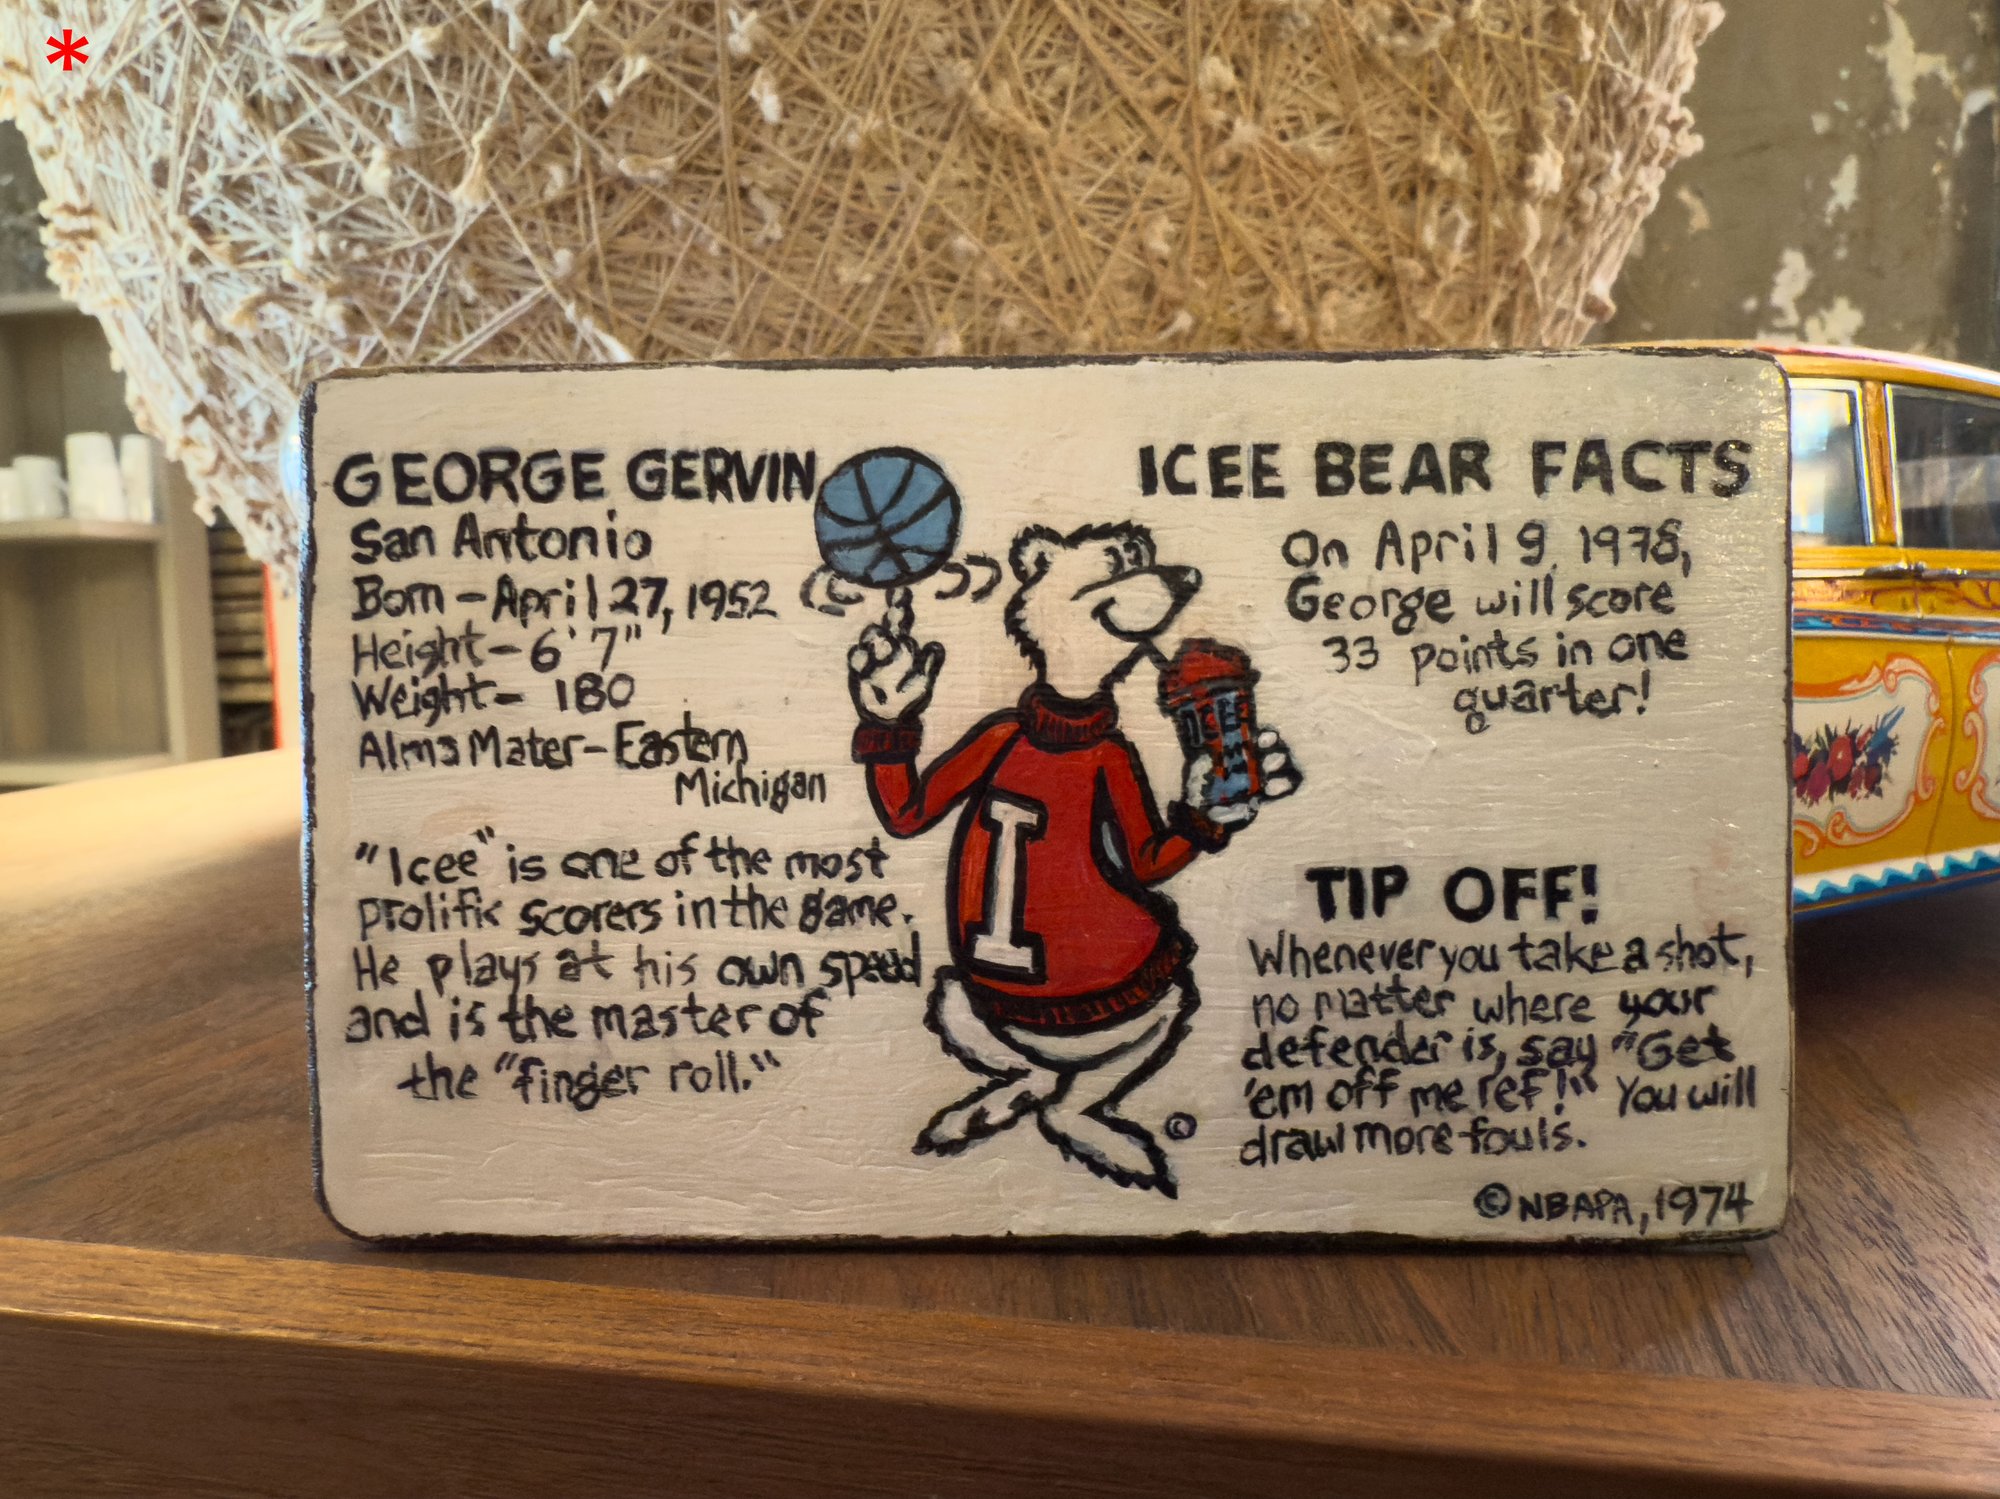 GEORGE GERVIN
San Antonio
Born - April 27, 1952
Height - 6' 7"
Weight - 180
Alma Mater - Eastern
Michigan
"Icee" is one of the most
prolific scorers in the game.
He plays at his own speed
and is the master of
the "finger roll."
I
ICEE
©
ICEE BEAR FACTS
On April 9, 1978,
George will score
33 points in one
quarter!
TIP OFF!
Whenever you take a shot,
no matter where your
defender is, say "Get
'em off me ref!" You will
draw more fouls.
© NBAPA, 1974